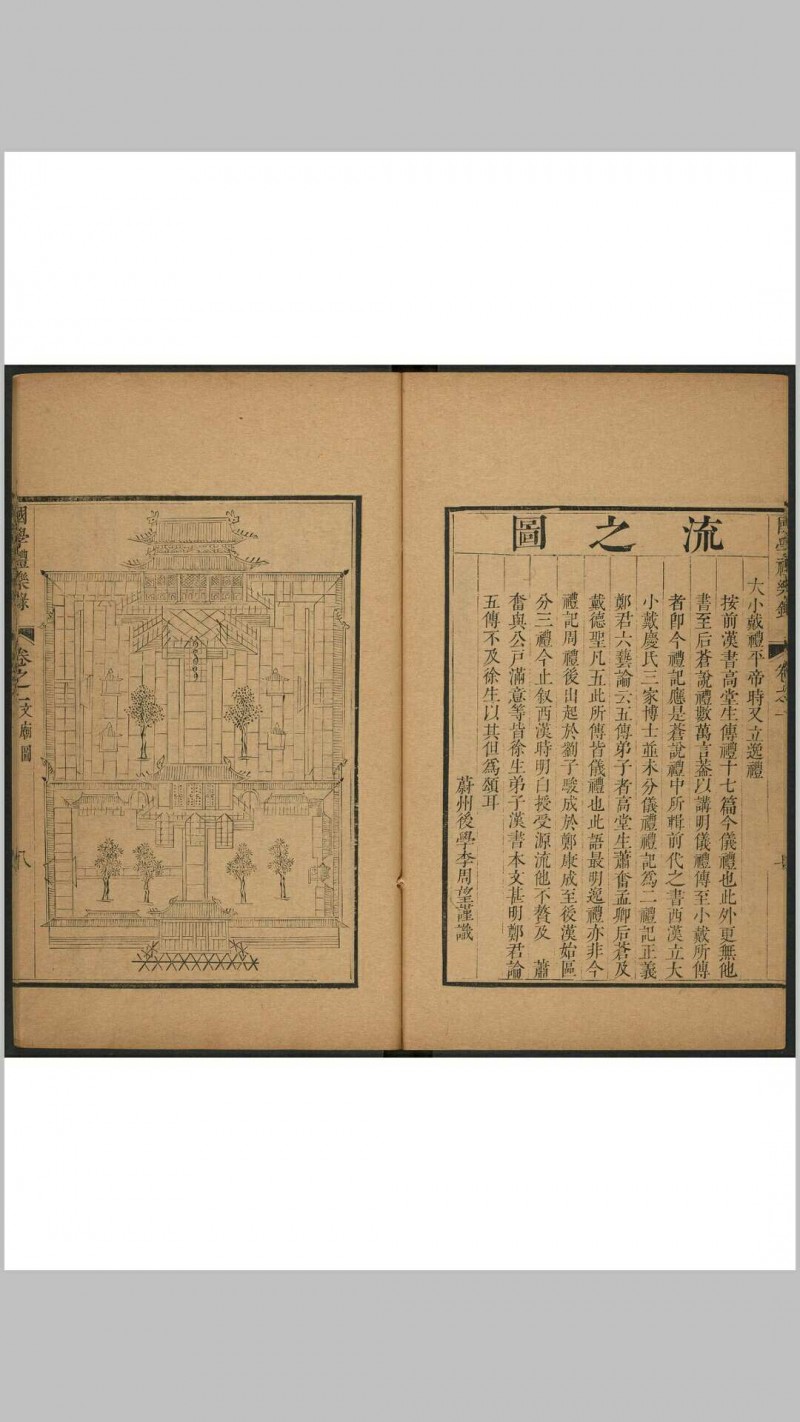 流之圖
大小戴禮平帝時又立逸禮
按前漢書高堂生傳禮十七篇今儀禮也此外更無他
書至后蒼說禮數萬言蓋以講明儀禮傳至小戴所傳
者卽今禮記應是蒼說禮中所輯前代之書西漢立大
小戴慶氏三家博士並未分儀禮禮記為二禮記正義
鄭君六藝論云五傳弟子者高堂生蕭奮孟卿后蒼及
戴德聖凡五此所傳皆儀禮也此語最明逸禮亦非今
禮記周禮後出起於劉子駿成於鄭康成至後漢始區
分三禮今止叙西漢時明白授受源流他不贅及 蕭
奮與公戶滿意等皆徐生弟子漢書本文甚明鄭君論
五傳不及徐生以其但為頌耳
蔚州後學李周望謹識
國學禮樂錄
卷之一
國學禮樂錄
卷之一
文廟圖
八